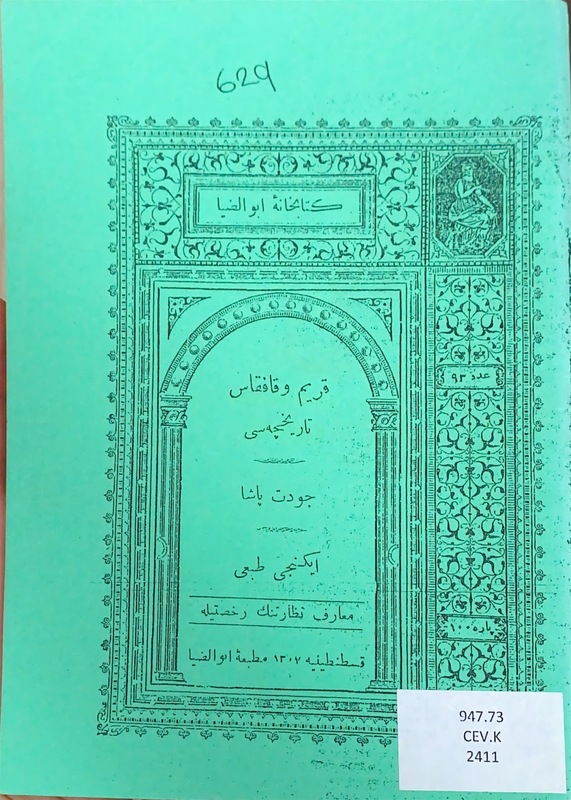 629
كتابخانهٔ ابوالضيا
عدد ٩٣
قريم و قافقاس
تاريخچه‌سى
جودت پاشا
ايكنجى طبعى
معارف نظارتنك رخصتيله
قسطنطينيه ١٣٠٧ مطبعهٔ ابوالضيا
پاره ١٠٠
947.73
CEV.K
2411